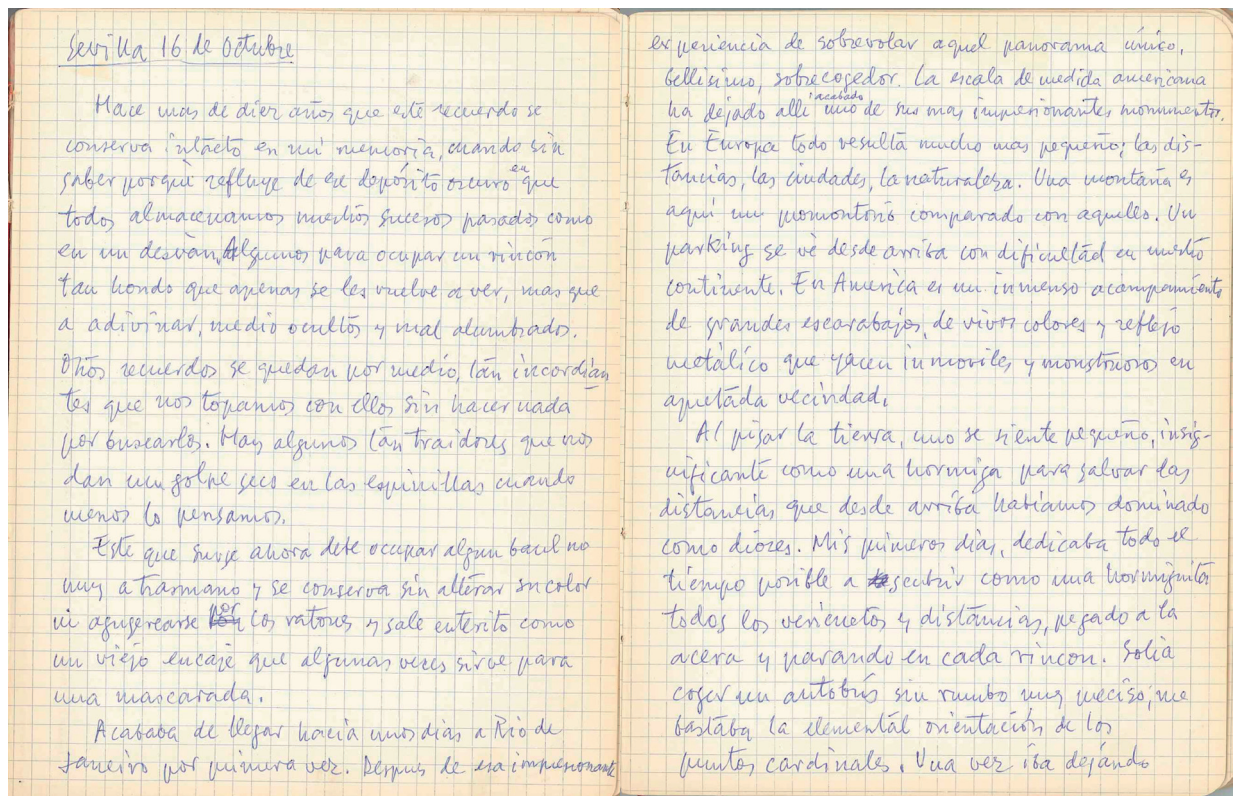 Sevilla 16 de Octubre
Hace mas de diez años que este recuerdo se
conserva intacto en mi memoria, cuando sin
saber porqué refluye de ese depósito oscuro en que
todos almacenamos nuestros sucesos pasados como
en un desván. Algunos para ocupar un rincón
tan hondo que apenas se les vuelve a ver, mas que
a adivinar, medio ocultos y mal alumbrados.
Otros recuerdos se quedan por medio, tan incordian
tes que nos topamos con ellos sin hacer nada
por buscarlos. Hay algunos tan traidores que nos
dan un golpe seco en las espinillas cuando
menos lo pensamos.
Este que surge ahora debe ocupar algun baul no
muy a trasmano y se conserva sin alterar su color
ni agugerearse por los ratones y sale enterito como
un viejo encaje que algunas veces sirve para
una mascarada.
Acababa de llegar hacia unos dias a Rio de
Janeiro por primera vez. Despues de esa impresionante
experiencia de sobrevolar aquel panorama único,
bellisimo, sobrecogedor. La escala de medida americana
ha dejado alli acabado uno de sus mas impresionantes monumentos.
En Europa todo resulta mucho mas pequeño; las dis-
tancias, las ciudades, la naturaleza. Una montaña es
aqui un promontorio comparado con aquello. Un
parking se vé desde arriba con dificultad en nuestro
continente. En America es un inmenso acampamiento
de grandes escarabajos, de vivos colores y reflejo
metálico que yacen inmoviles y monstruosos en
apretada vecindad.
Al pisar la tierra, uno se siente pequeño, insig-
nificante como una hormiga para salvar las
distancias que desde arriba habiamos dominado
como dioses. Mis primeros dias, dedicaba todo el
tiempo posible a descubrir como una hormiguita
todos los vericuetos y distancias, pegado a la
acera y parando en cada rincon. Solia
coger un autobús sin rumbo muy preciso; me
bastaba la elemental orientación de los
puntos cardinales. Una vez iba dejando